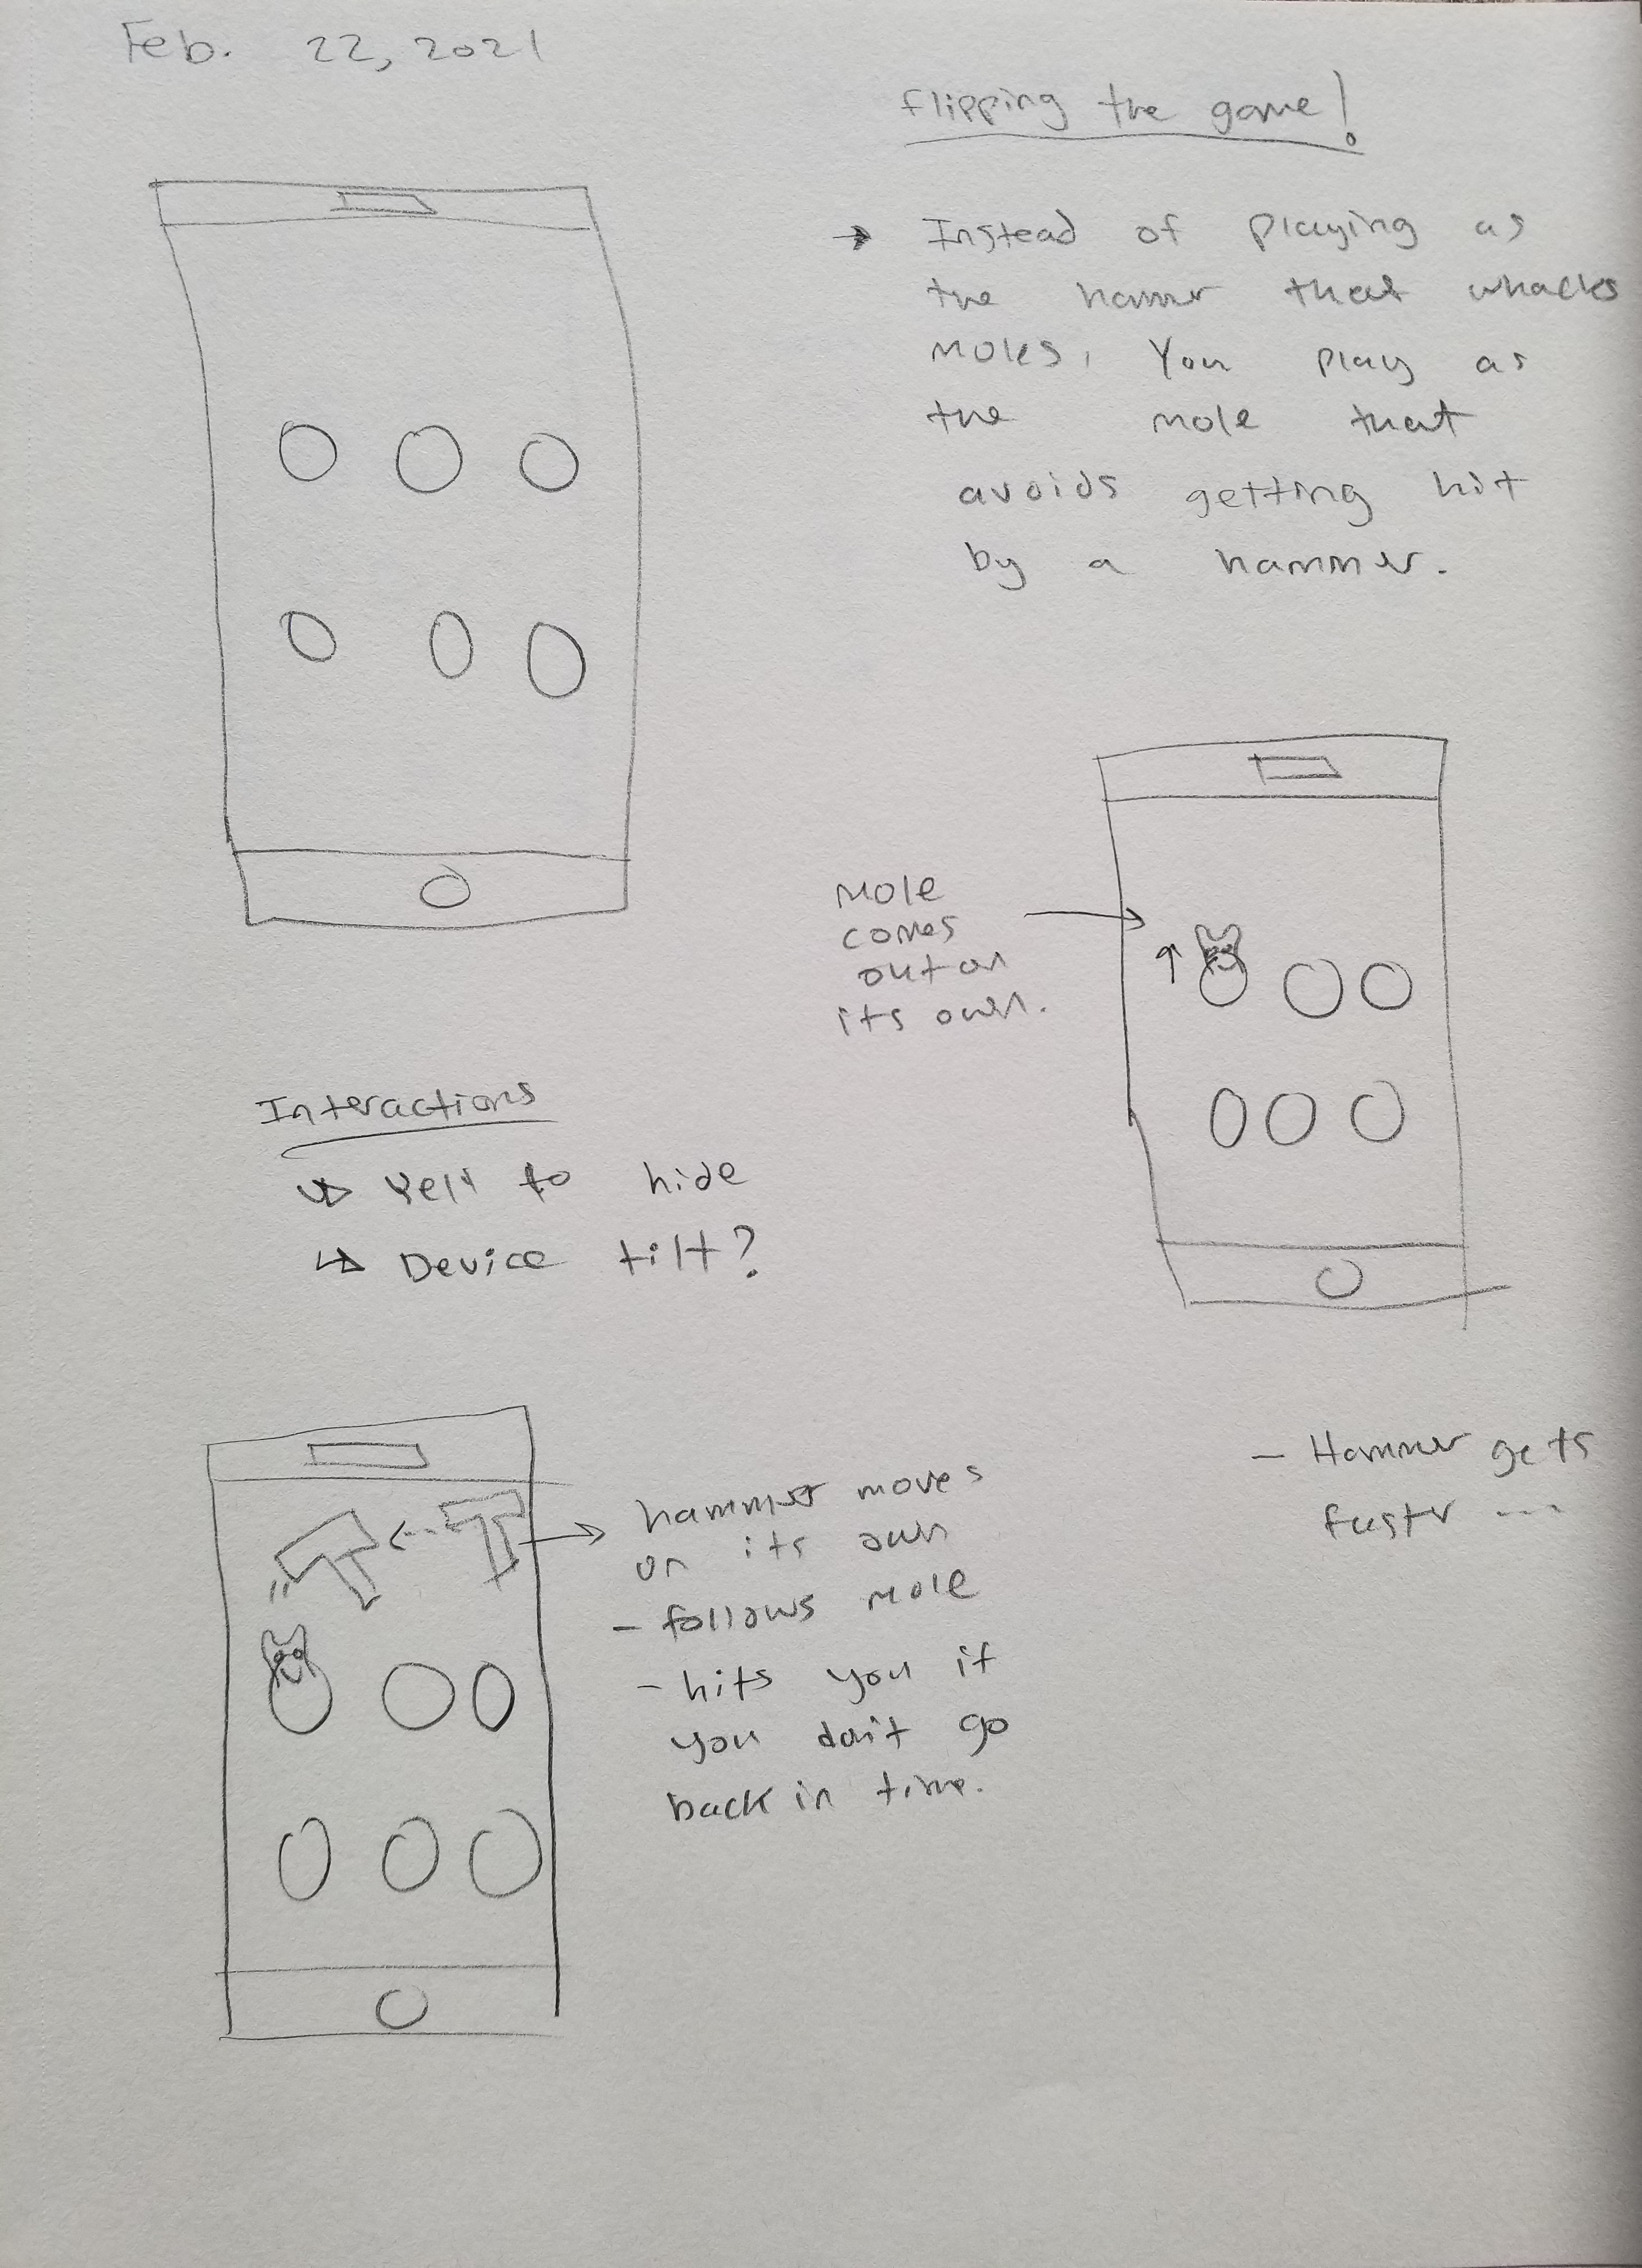 Feb. 22, 2021
flipping the game!
→ Instead of playing as
the hammer that whacks
moles, You play as
the mole that
avoids getting hit
by a hammer.
Mole
comes
out on
its own.
Interactions
↳ Yell to hide
↳ Device tilt?
hammer moves
on its own
- follows mole
- hits you if
you don't go
back in time.
- Hammer gets
faster ...